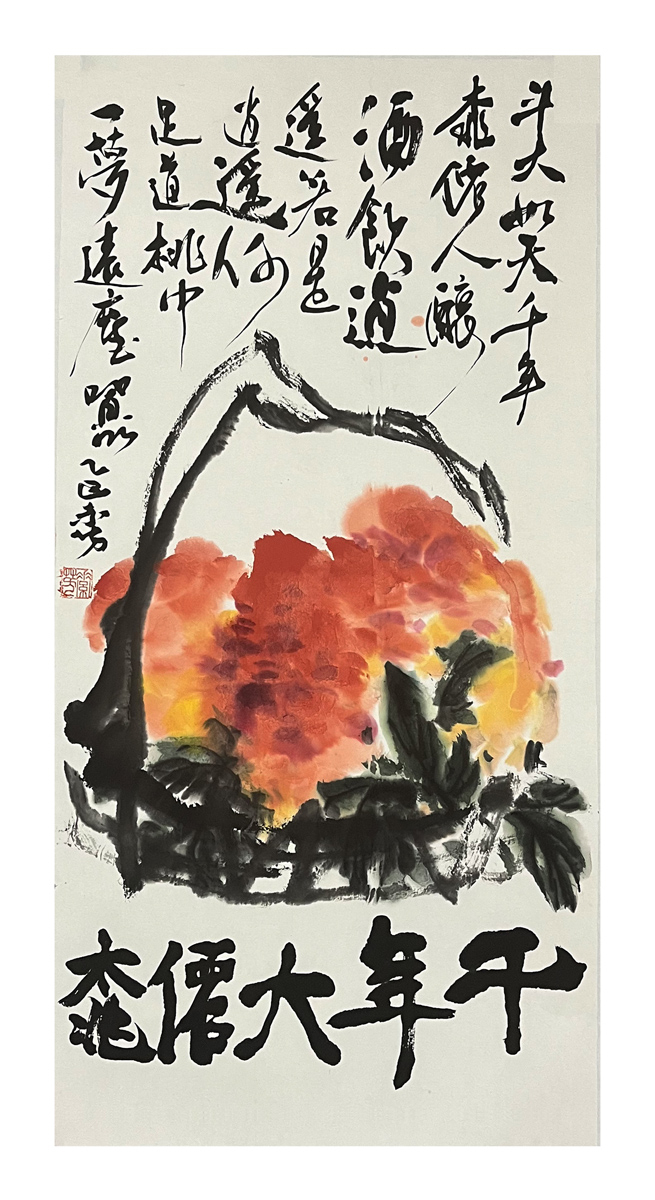 斗大如天千年
桃僊人釀
酒飲逍
遥若是
逍遥何
足道桃中
一夢遠塵囂乙巳
千年大僊桃